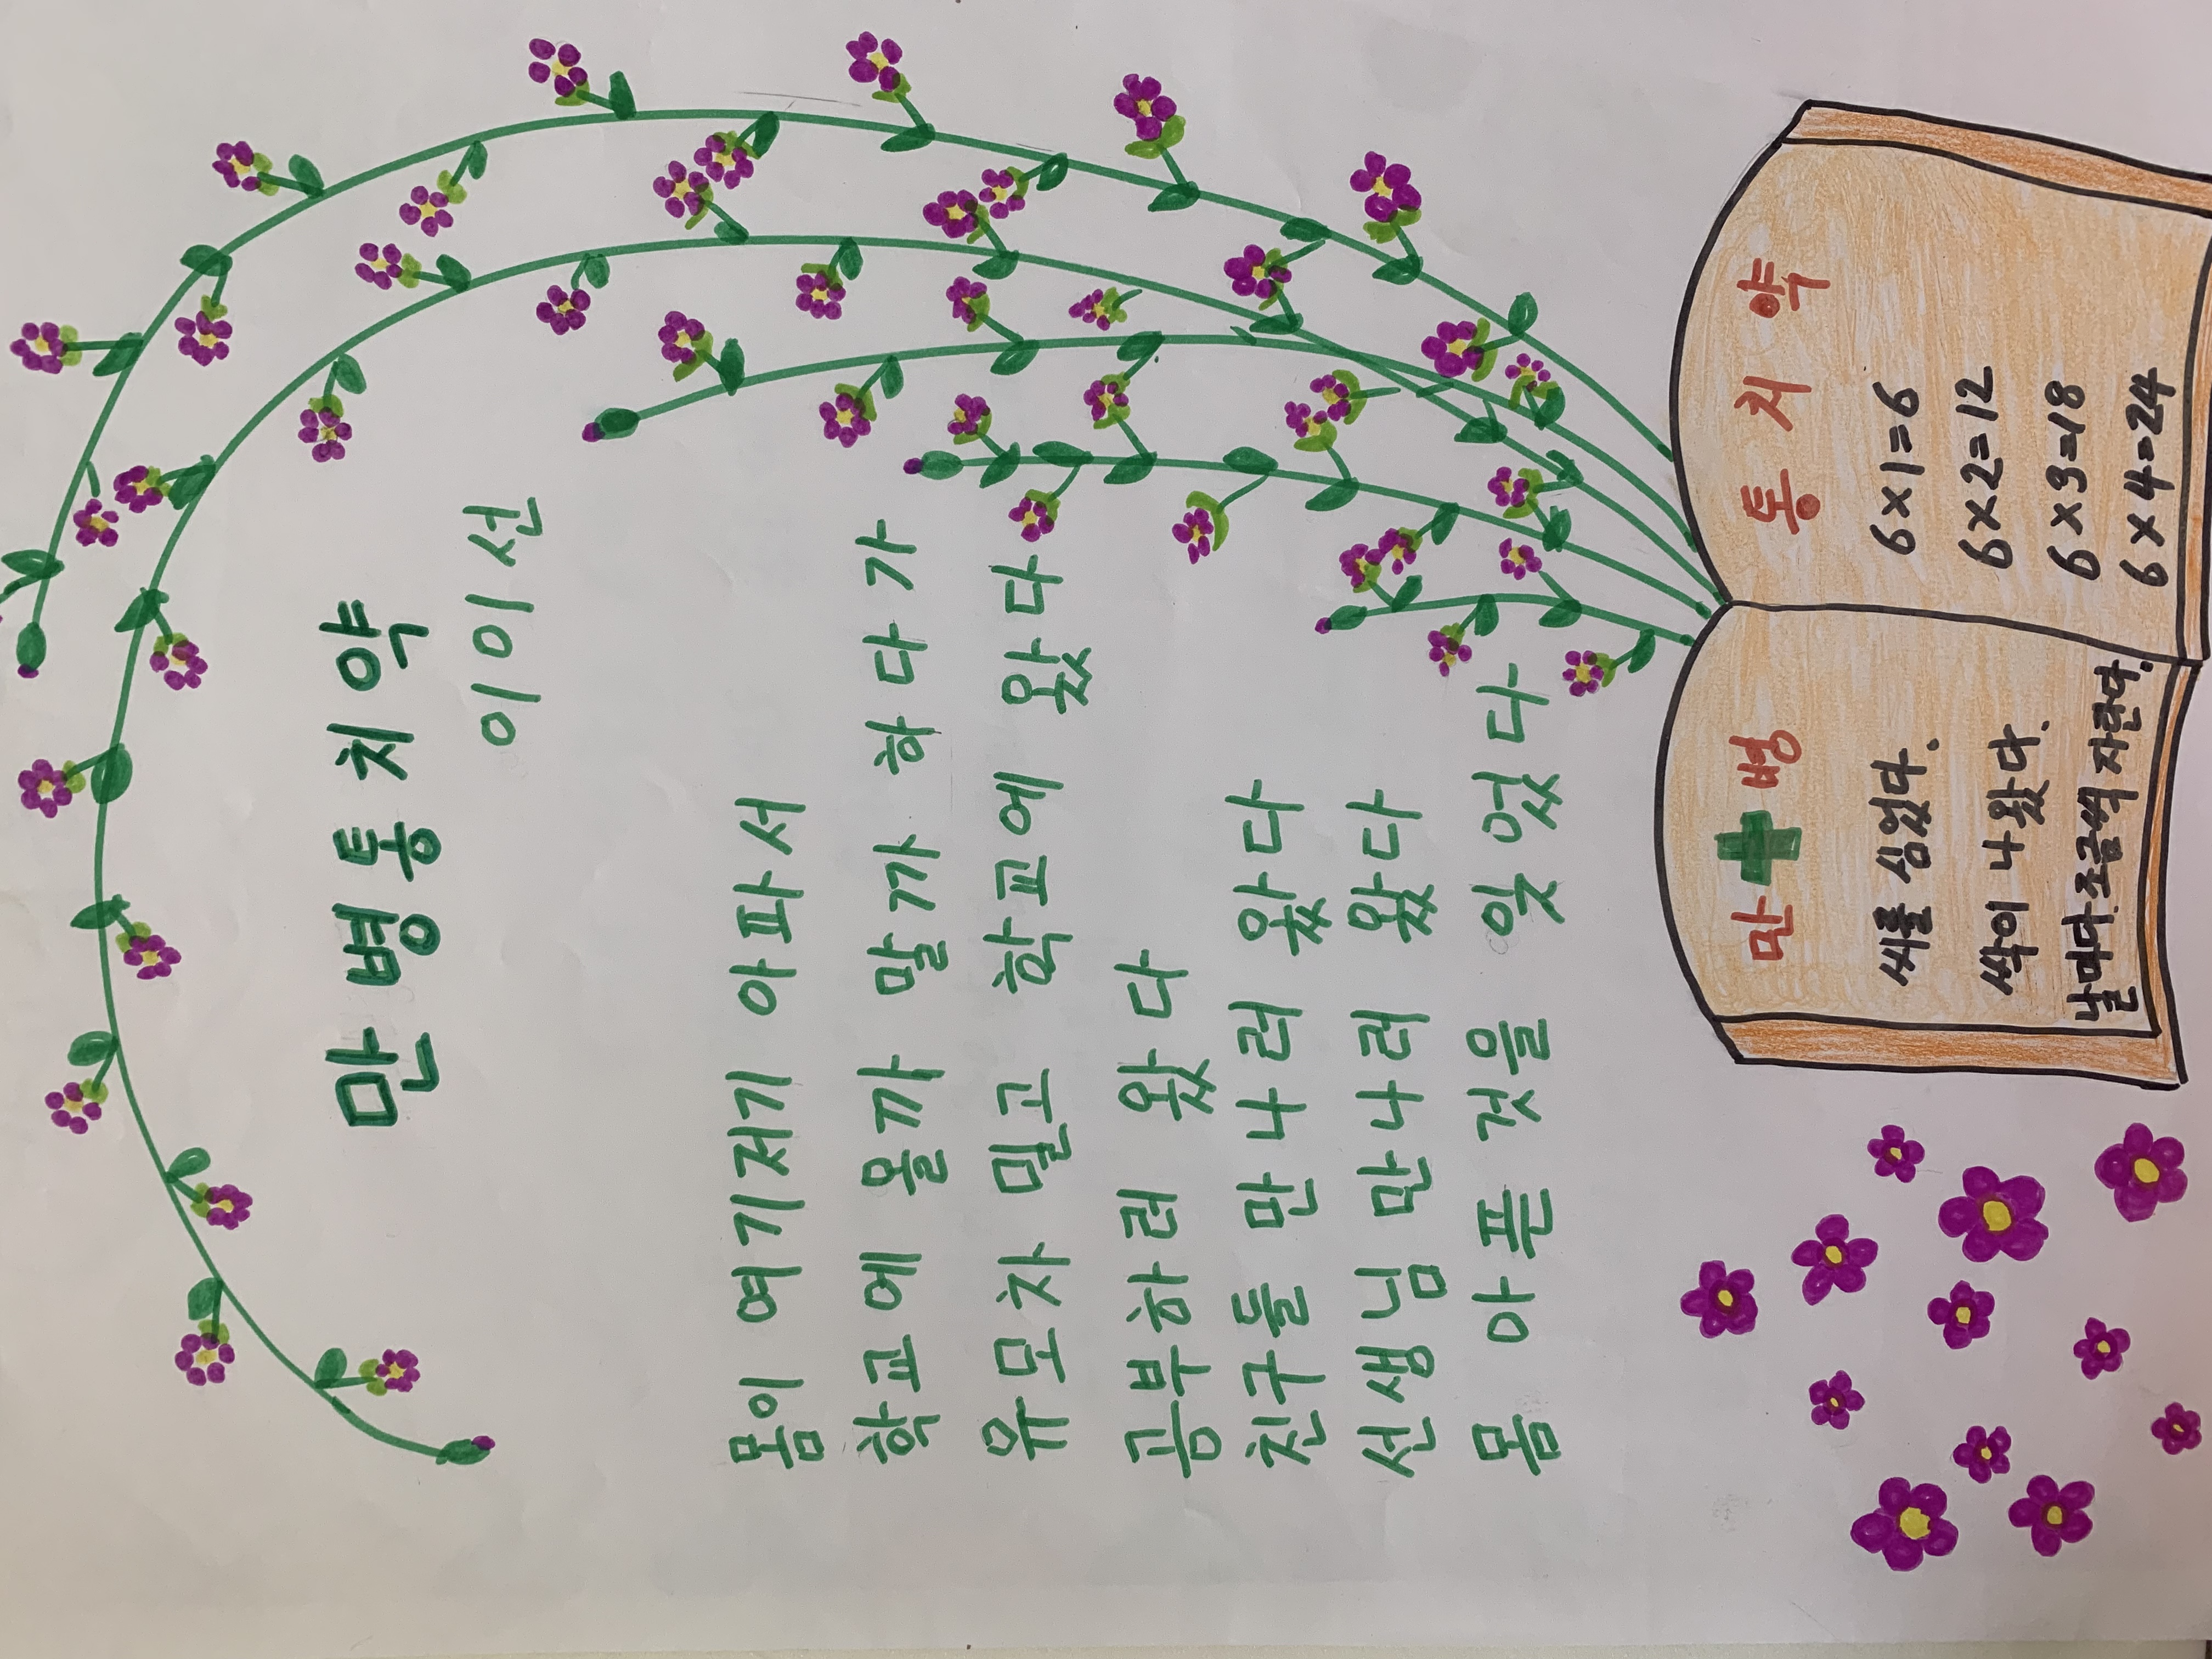 만병통치약
이이선
몸이 여기저기 아파서
학교에 올까 말까 하다가
유모차 밀고 학교에 왔다
공부하러 왔다
친구들 만나러 왔다
선생님 만나러 왔다
몸 아픈 것을 잊었다
만병
씨를 심었다.
싹이 나왔다.
날마다 조금씩 자란다.
통치약
6×1=6
6×2=12
6×3=18
6×4=24